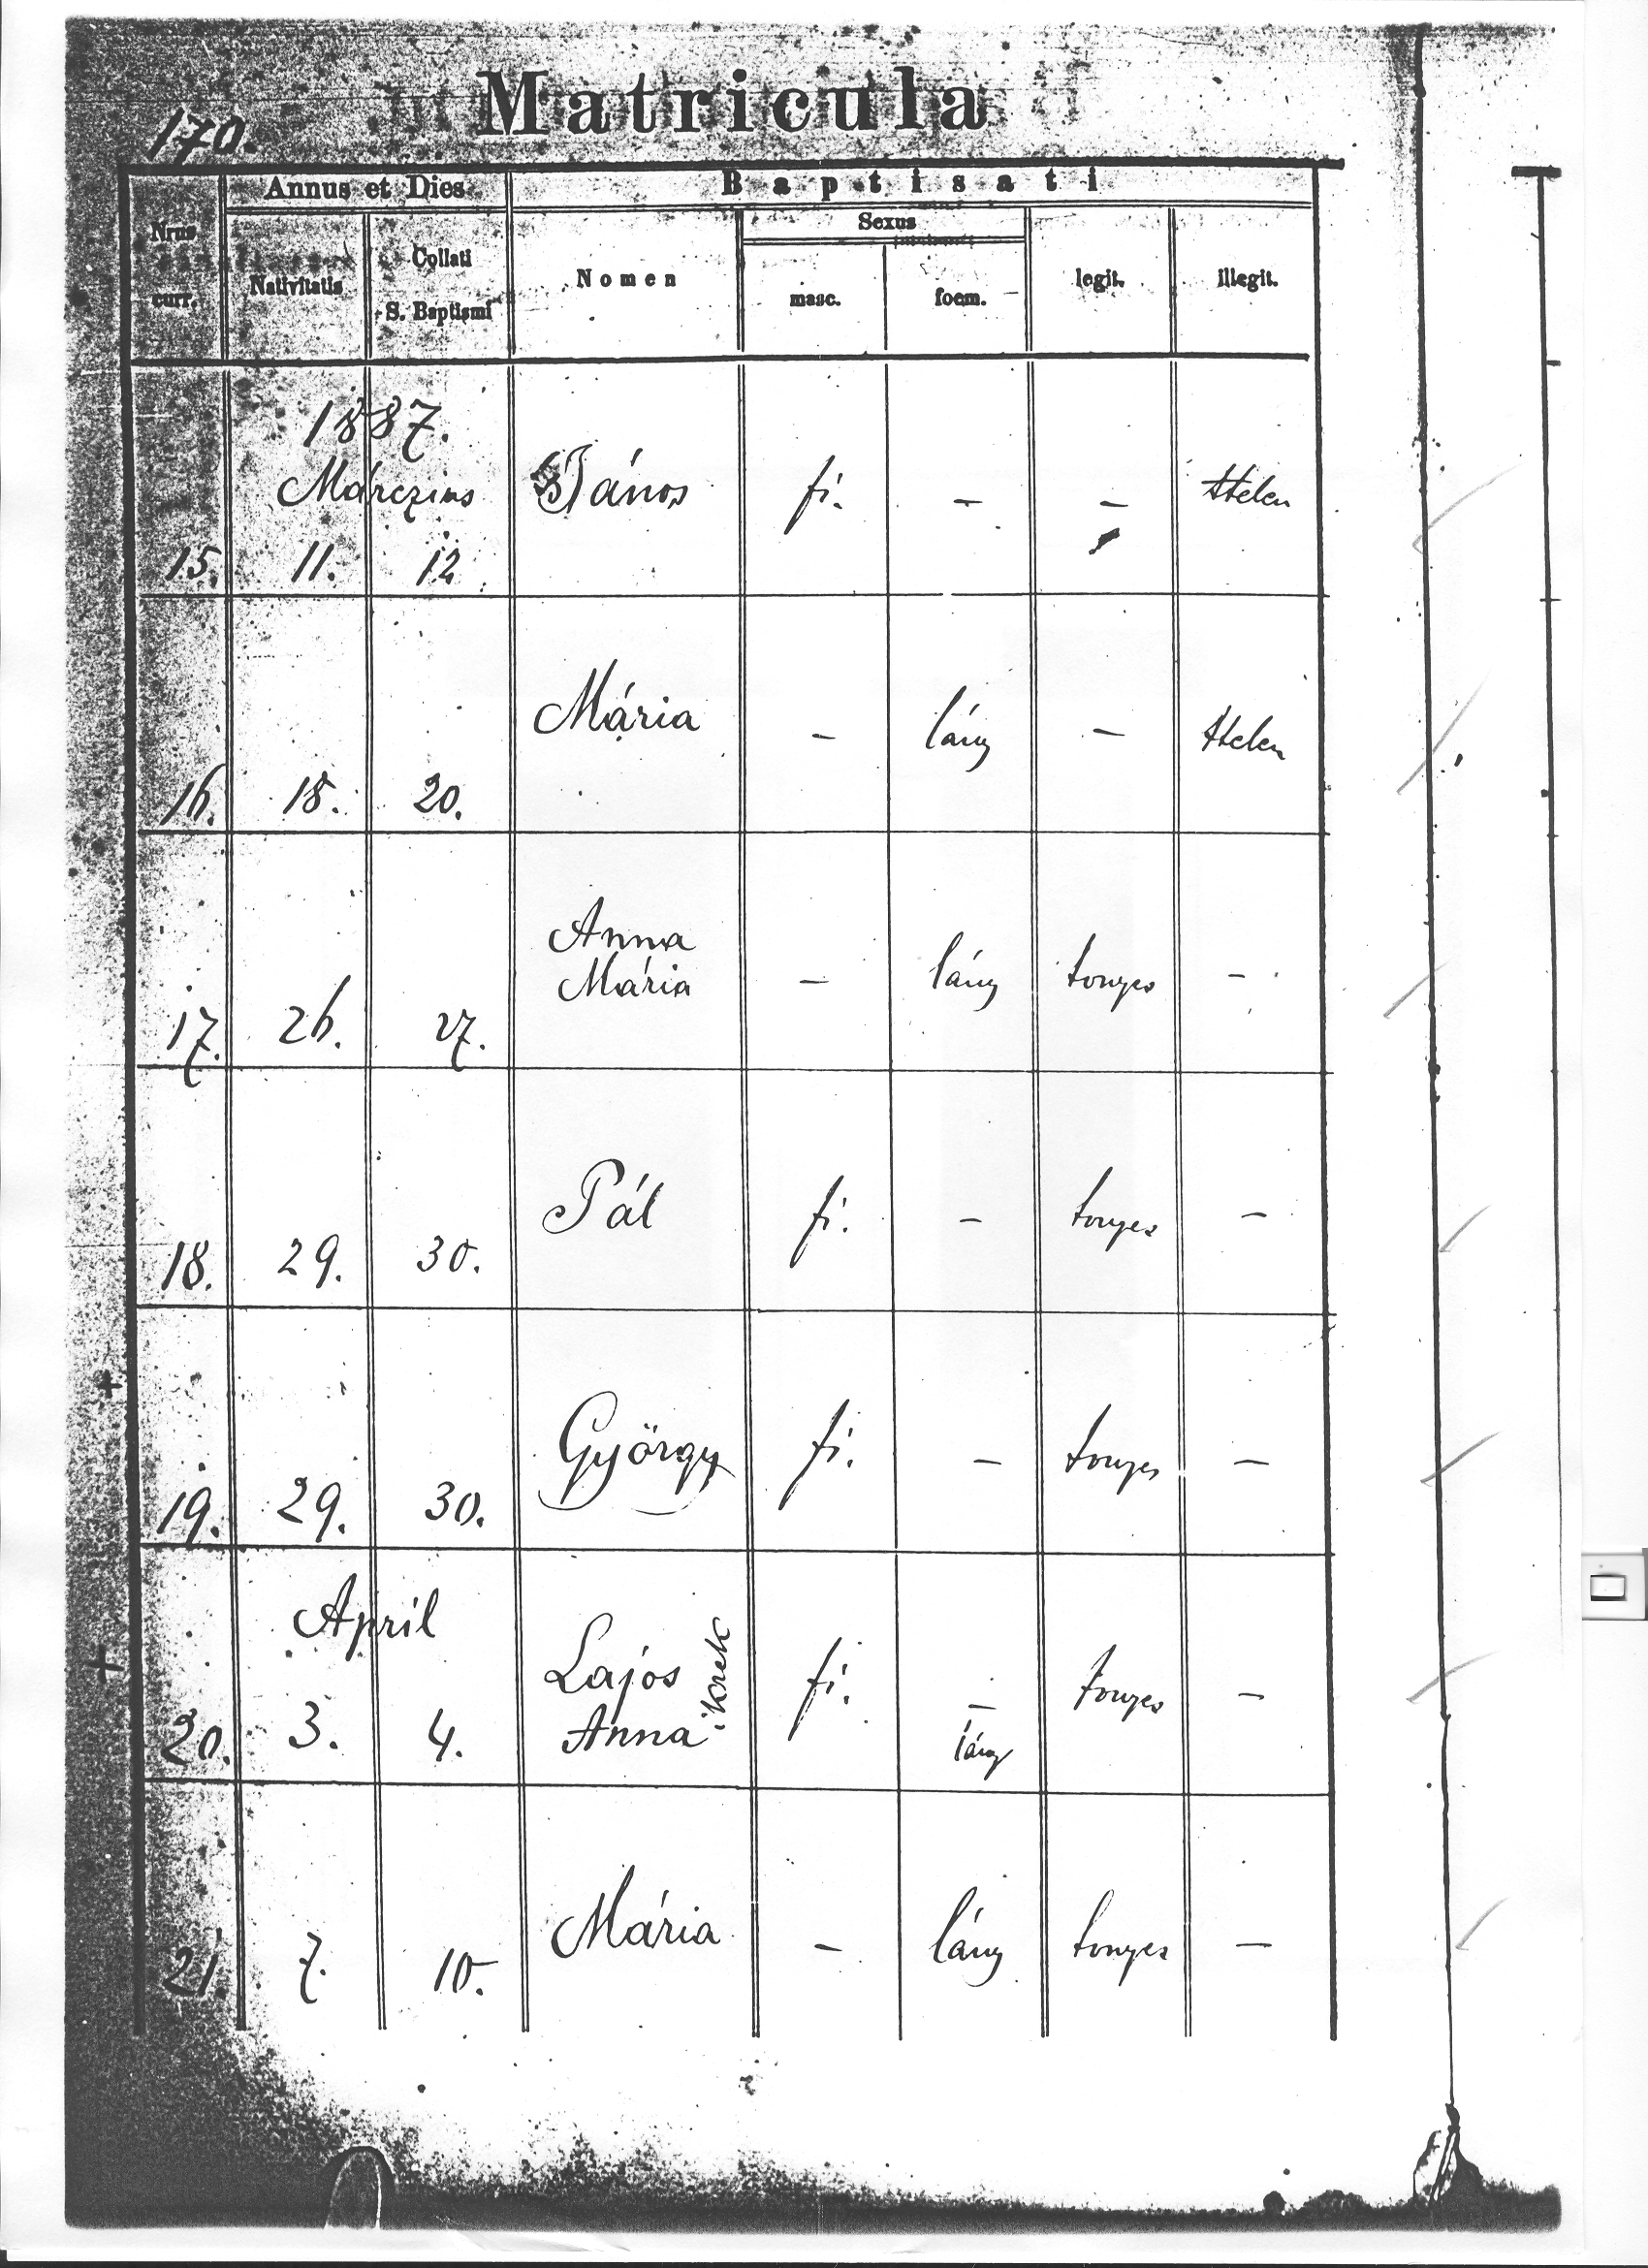 170.
Matricula
Nrus curr.
Annus et Dies
Nativitatis
Collati S. Baptismi
Baptisati
Nomen
Sexus
masc.
foem.
legit.
illegit.
1887.
Márczius
15. 11. 12. János fi. – – ttelen
16. 18. 20. Mária – lány – ttelen
17. 26. 27. Anna Mária – lány tvnyes –
18. 29. 30. Pál fi. – tvnyes –
19. 29. 30. György fi. – tvnyes –
April
20. 3. 4. Lajos Anna ikrek fi. – lány tvnyes –
21. 7. 10. Mária – lány tvnyes –